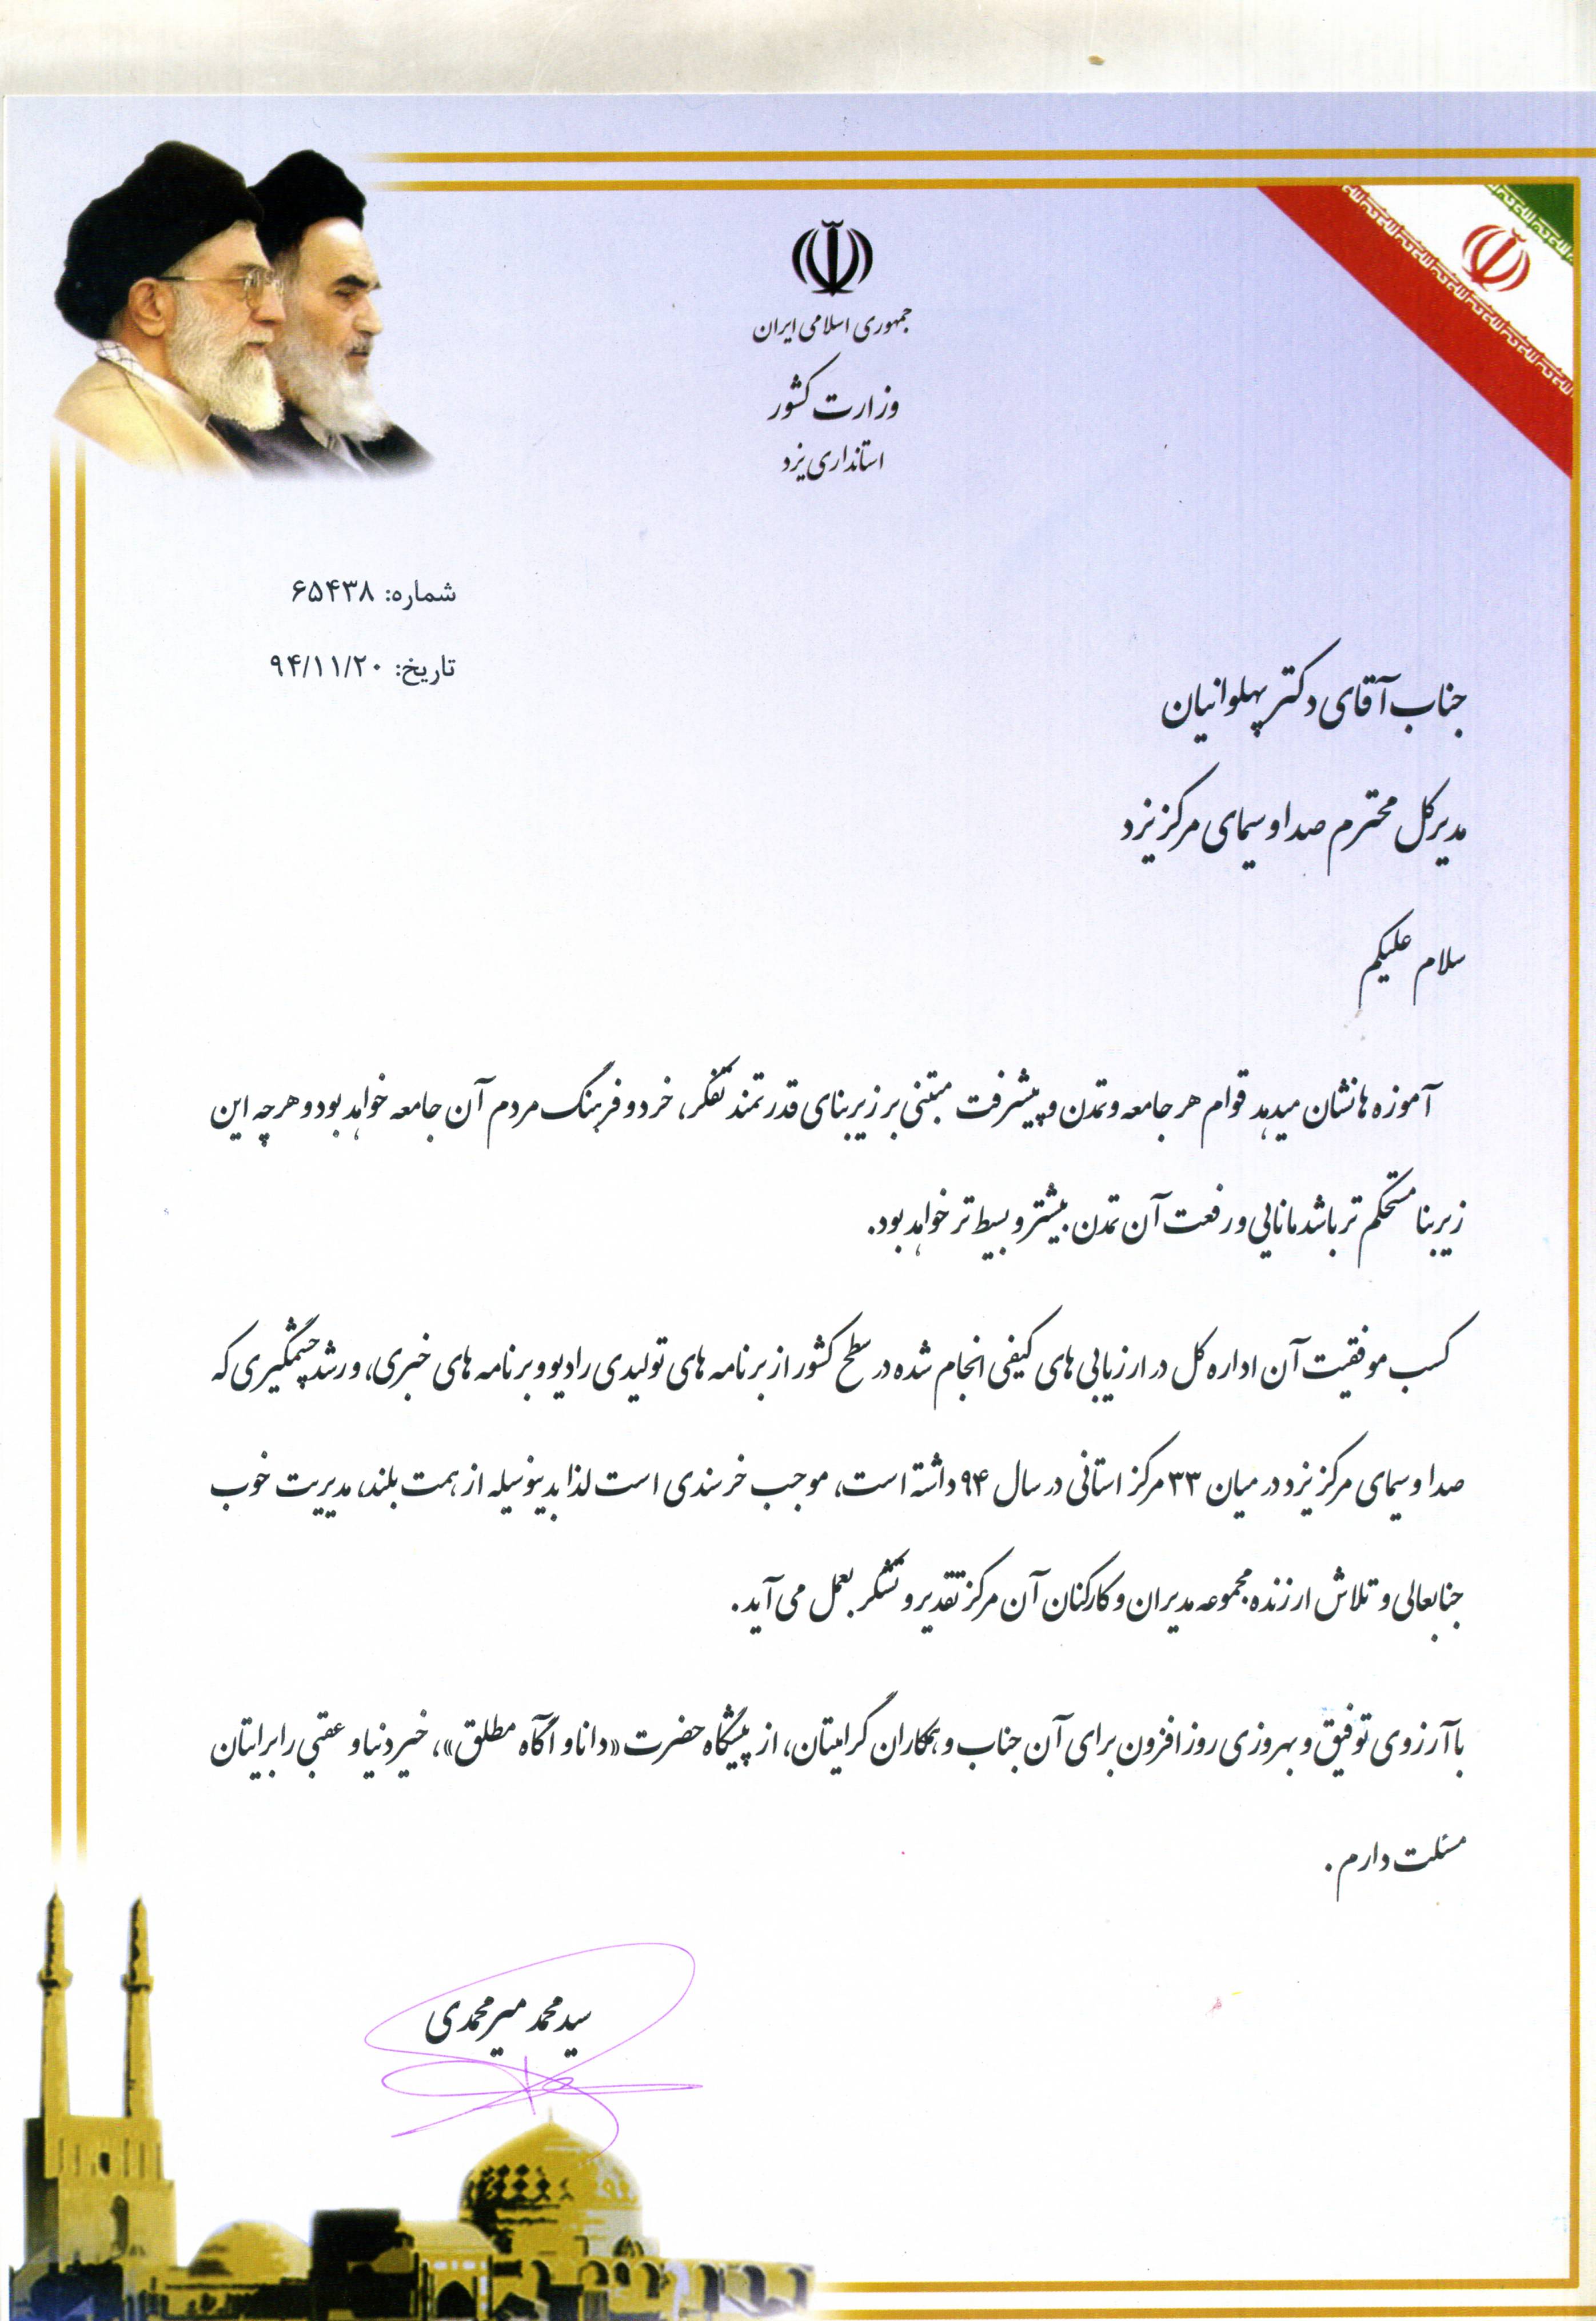 جمهوری اسلامی ایران
وزارت کشور
استانداری یزد
شماره: ۶۵۴۳۸
تاریخ: ۹۴/۱۱/۲۰
جناب آقای دکتر پهلوانیان
مدیرکل محترم صدا و سیمای مرکز یزد
سلام علیکم
آموزه ها نشان میدهد قوام هر جامعه و تمدن و پیشرفت مبتنی بر زیربنای قدرتمند تفکر، خرد و فرهنگ مردم آن جامعه خواهد بود و هر چه این
زیربنا مستحکم تر باشد مانایی و رفعت آن تمدن بیشتر و بسیط تر خواهد بود.
کسب موفقیت آن اداره کل در ارزیابی های کیفی انجام شده در سطح کشور از برنامه های تولیدی رادیو و برنامه های خبری، و رشد چشمگیری که
صدا و سیمای مرکز یزد در میان ۳۳ مرکز استانی در سال ۹۴ داشته است، موجب خرسندی است لذا بدینوسیله از همت بلند، مدیریت خوب
جنابعالی و تلاش ارزنده مجموعه مدیران و کارکنان آن مرکز تقدیر و تشکر بعمل می آید.
با آرزوی توفیق و بهروزی روز افزون برای آن جناب و همکاران گرامیتان، از پیشگاه حضرت «دانا و آگاه مطلق»، خیر دنیا و عقبی را برایتان
مسئلت دارم.
سید محمد میرمحمدی